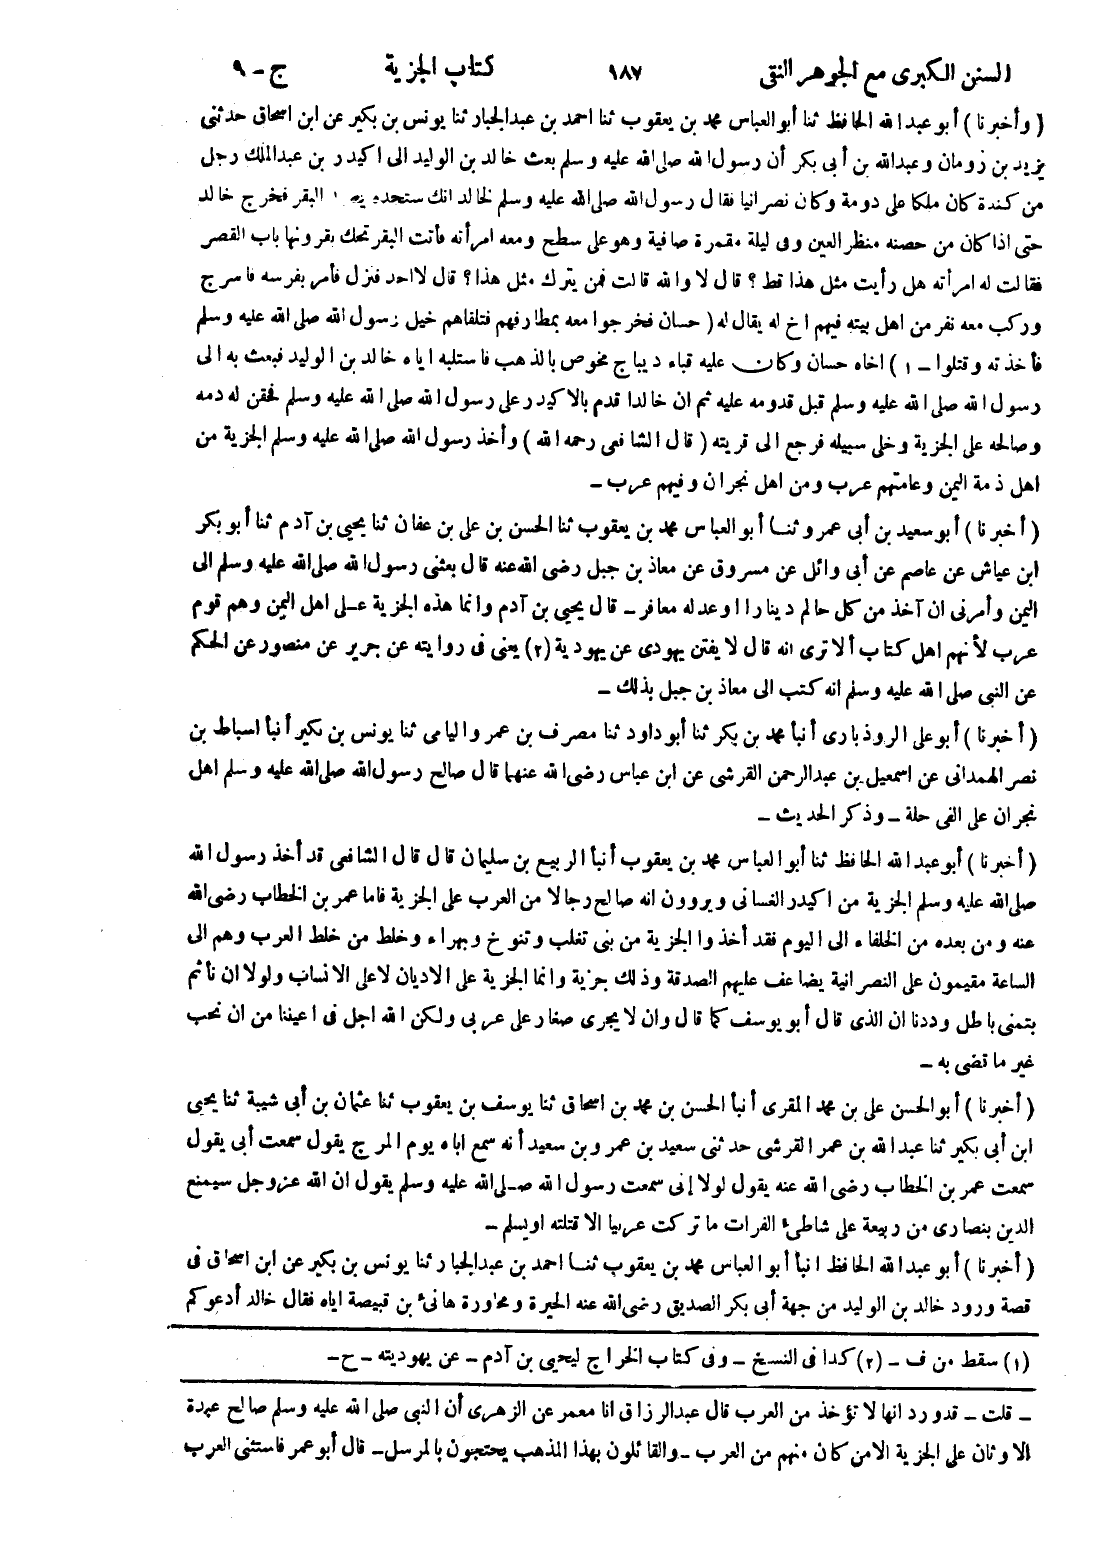 السنن الكبرى مع الجوهر النقى ١٨٧ كتاب الجزية ج - ٩
( وأخبرنا ) أبو عبد الله الحافظ ثنا أبو العباس محمد بن يعقوب ثنا احمد بن عبد الجبار ثنا يونس بن بكير عن ابن اسحاق حدثنى
يزيد بن رومان وعبد الله بن أبى بكر أن رسول الله صلى الله عليه وسلم بعث خالد بن الوليد الى اكيدر بن عبد الملك رجل
من كندة كان ملكا على دومة وكان نصرانيا فقال رسول الله صلى الله عليه وسلم لخالد انك ستجده يصيد البقر فخرج خالد
حتى اذا كان من حصنه منظر العين وفى ليلة مقمرة صافية وهو على سطح ومعه امرأته فأتت البقر تحك بقرونها باب القصر
فقالت له امرأته هل رأيت مثل هذا قط ؟ قال لا والله قالت فمن يترك مثل هذا ؟ قال لا احد فنزل فأمر بفرسه فاسرج
وركب معه نفر من اهل بيته فيهم اخ له يقال له ( حسان فخرجوا معه بمطارفهم فتلقاهم خيل رسول الله صلى الله عليه وسلم
فأخذته وقتلوا - ١ ) اخاه حسان وكان عليه قباء ديباج مخوص بالذهب فاستلبه اياه خالد بن الوليد فبعث به الى
رسول الله صلى الله عليه وسلم قبل قدومه عليه ثم ان خالدا قدم بالاكيدر على رسول الله صلى الله عليه وسلم فحقن له دمه
وصالحه على الجزية وخلى سبيله فرجع الى قريته ( قال الشافعى رحمه الله ) وأخذ رسول الله صلى الله عليه وسلم الجزية من
اهل ذمة اليمن وعامتهم عرب ومن اهل نجران وفيهم عرب -
( أخبرنا ) أبو سعيد بن أبى عمرو ثنا أبو العباس محمد بن يعقوب ثنا الحسن بن على بن عفان ثنا يحيى بن آدم ثنا أبو بكر
ابن عياش عن عاصم عن أبى وائل عن مسروق عن معاذ بن جبل رضى الله عنه قال بعثنى رسول الله صلى الله عليه وسلم الى
اليمن وأمرنى ان آخذ من كل حالم دينارا او عدله معافر - قال يحيى بن آدم وانما هذه الجزية على اهل اليمن وهم قوم
عرب لأنهم اهل كتاب ألا ترى انه قال لا يفتن يهودى عن يهودية (٢) يعنى فى روايته عن جرير عن منصور عن الحكم
عن النبى صلى الله عليه وسلم انه كتب الى معاذ بن جبل بذلك -
( أخبرنا ) أبو على الروذبارى أنبأ محمد بن بكر ثنا أبو داود ثنا مصرف بن عمرو اليامى ثنا يونس بن بكير أنبأ اسباط بن
نصر الهمدانى عن اسمعيل بن عبد الرحمن القرشى عن ابن عباس رضى الله عنهما قال صالح رسول الله صلى الله عليه وسلم اهل
نجران على الفى حلة - وذكر الحديث -
( أخبرنا ) أبو عبد الله الحافظ ثنا أبو العباس محمد بن يعقوب أنبأ الربيع بن سليمان قال قال الشافعى قد أخذ رسول الله
صلى الله عليه وسلم الجزية من اكيدر الغسانى ويروون انه صالح رجالا من العرب على الجزية فاما عمر بن الخطاب رضى الله
عنه ومن بعده من الخلفاء الى اليوم فقد أخذوا الجزية من بنى تغلب وتنوخ وبهراء وخلط من خلط العرب وهم الى
الساعة مقيمون على النصرانية يضاعف عليهم الصدقة وذلك جزية وانما الجزية على الاديان لا على الانساب ولولا ان نأثم
بتمنى باطل وددنا ان الذى قال أبو يوسف كما قال وان لا يجرى صغار على عربى ولكن الله اجل فى اعيننا من ان نحب
غير ما قضى به -
( أخبرنا ) أبو الحسن على بن محمد المقرى أنبأ الحسن بن محمد بن اسحاق ثنا يوسف بن يعقوب ثنا عثمان بن أبى شيبة ثنا يحيى
ابن أبى بكير ثنا عبد الله بن عمر القرشى حدثنى سعيد بن عمرو بن سعيد أنه سمع اباه يوم المرج يقول سمعت أبى يقول
سمعت عمر بن الخطاب رضى الله عنه يقول لولا إنى سمعت رسول الله صلى الله عليه وسلم يقول ان الله عزوجل سيمنع
الدين بنصارى من ربيعة على شاطئ الفرات ما تركت عربيا الا قتلته او يسلم -
( أخبرنا ) أبو عبد الله الحافظ انبأ أبو العباس محمد بن يعقوب ثنا احمد بن عبد الجبار ثنا يونس بن بكير عن ابن اسحاق فى
قصة ورود خالد بن الوليد من جهة أبى بكر الصديق رضى الله عنه الحيرة ومحاورة هانئ بن قبيصة اياه فقال خالد أدعوكم
(١) سقط من ف - (٢) كذا فى النسخ - وفى كتاب الخراج ليحيى بن آدم - عن يهوديته - ح -
- قلت - قد ورد انها لا تؤخذ من العرب قال عبد الرزاق انا معمر عن الزهرى أن النبى صلى الله عليه وسلم صالح عبدة
الاوثان على الجزية الا من كان منهم من العرب - والقائلون بهذا المذهب يحتجون بالمرسل - قال أبو عمر فاستثنى العرب